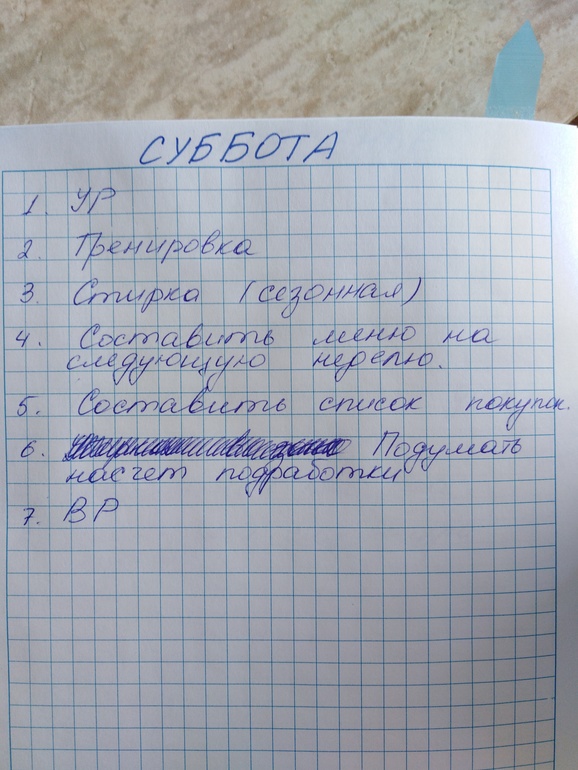 СУББОТА
1. УР
2. Тренировка
3. Стирка (сезонная)
4. Составить меню на
следующую неделю.
5. Составить список покупок.
6. Подумать
насчет подработки
7. ВР